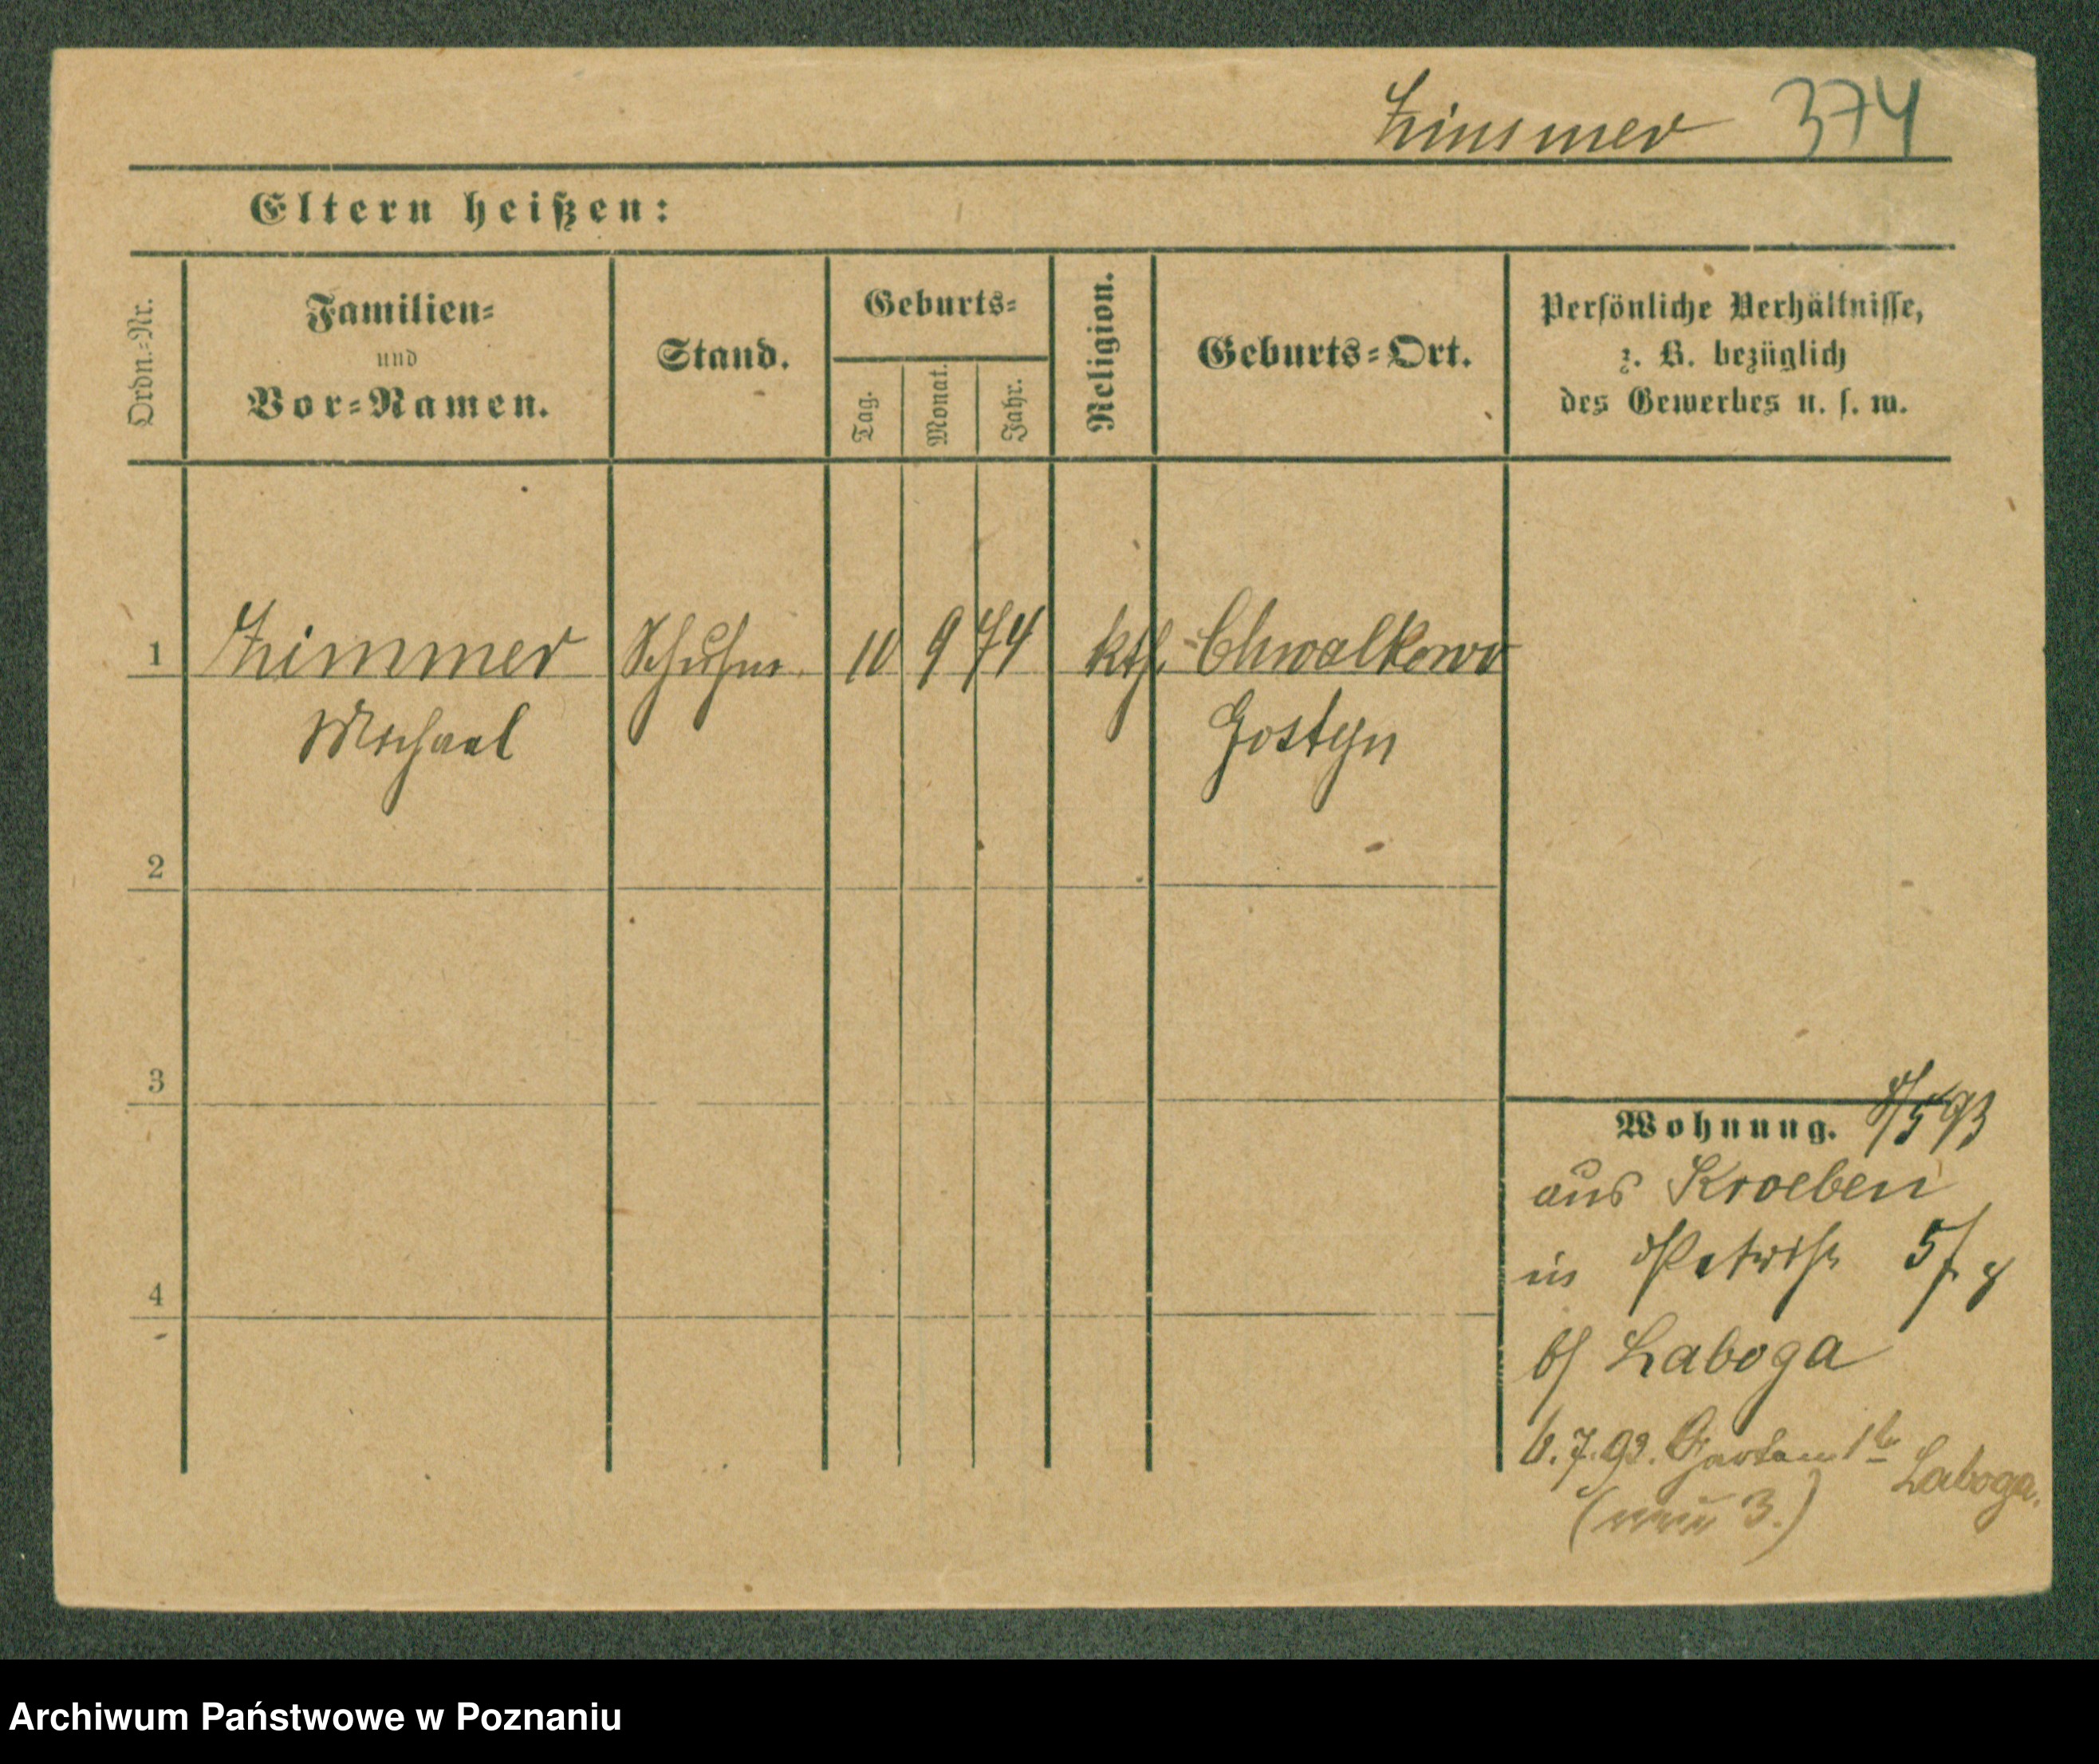 Zimmer 374
Eltern heißen:
Ordn.-Nr.
Familien-
und
Vor-Namen.
Stand.
Geburts-
Tag.
Monat.
Jahr.
Religion.
Geburts-Ort.
Persönliche Verhältnisse,
z. B. bezüglich
des Gewerbes u. s. w.
1 Zimmer Schuhm. 10 9 74 kth. Chwalkowo
Michael Gostyn
2
3
4
Wohnung. 8/5 93
aus Kroeben
in
b/ Laboga
6.7.93. Laboga.
(neu 3.)
Archiwum Państwowe w Poznaniu